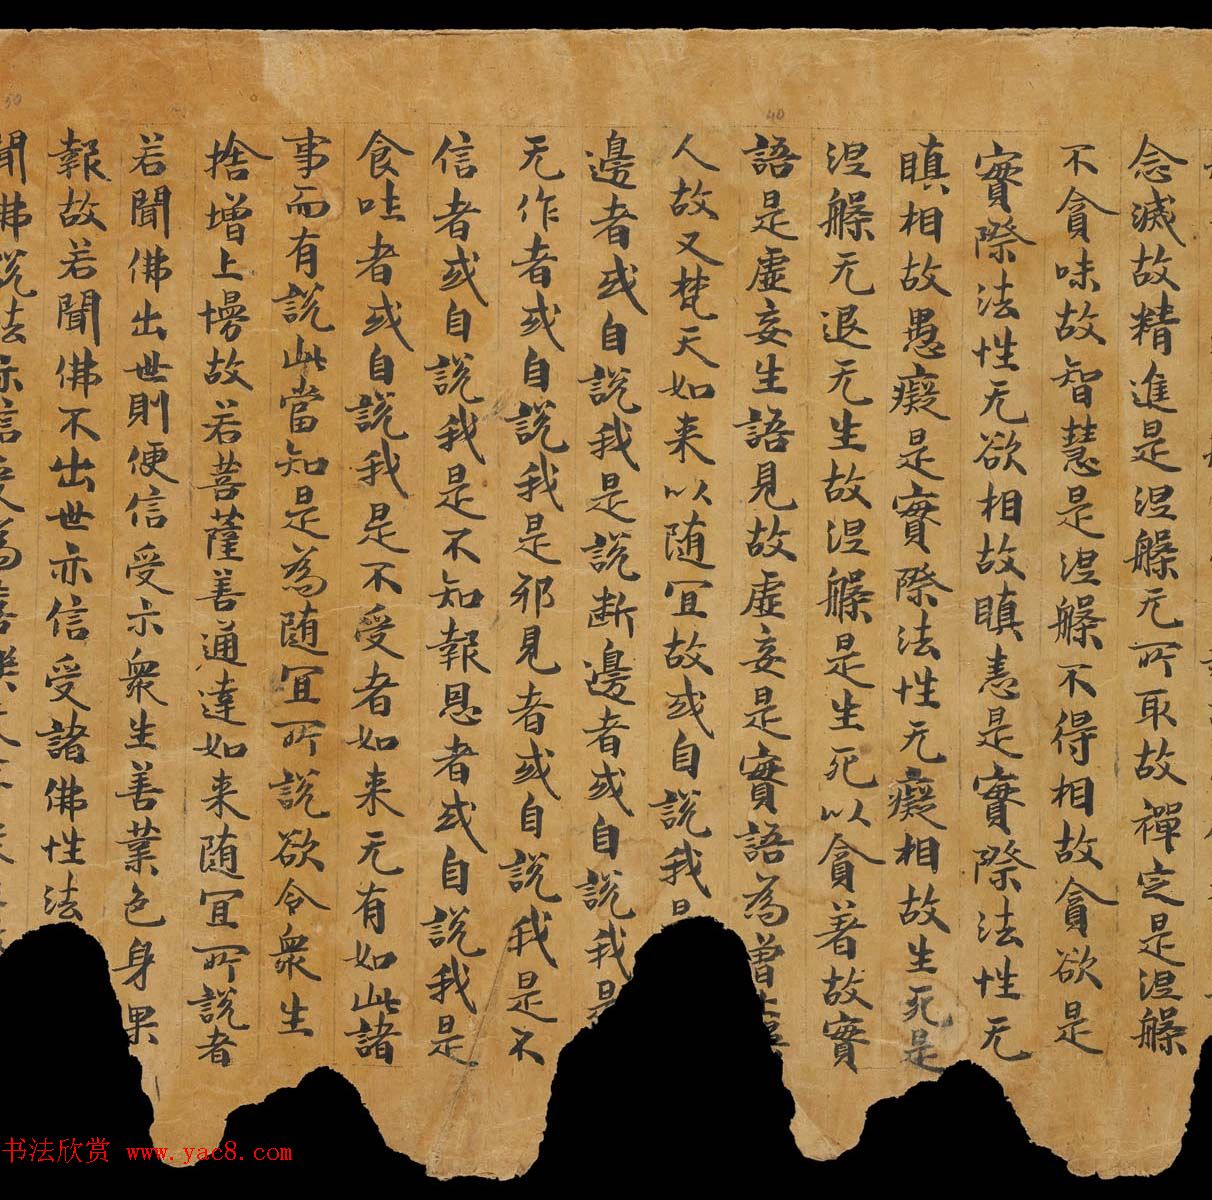 念滅故精進是涅槃无所取故禪定是涅槃
不貪味故智慧是涅槃不得相故貪欲是
實際法性无欲相故瞋恚是實際法性无
瞋相故愚癡是實際法性无癡相故生死是
涅槃无退无生故涅槃是生死以貪著故實
語是虛妄生語見故虛妄是實語為增上慢
人故又梵天如来以随宜故或自說我是
邊者或自說我是說断邊者或自說我是
无作者或自說我是邪見者或自說我是不
信者或自說我是不知報恩者或自說我是
食吐者或自說我是不受者如来无有如此諸
事而有說此當知是為随宜所說欲令衆生
捨增上慢故若菩薩善通達如来随宜所說者
若聞佛出世則便信受示衆生善業色身果
報故若聞佛不出世亦信受諸佛性法
聞佛說法亦信受為喜樂
50
40
书法欣赏 www.yac8.com